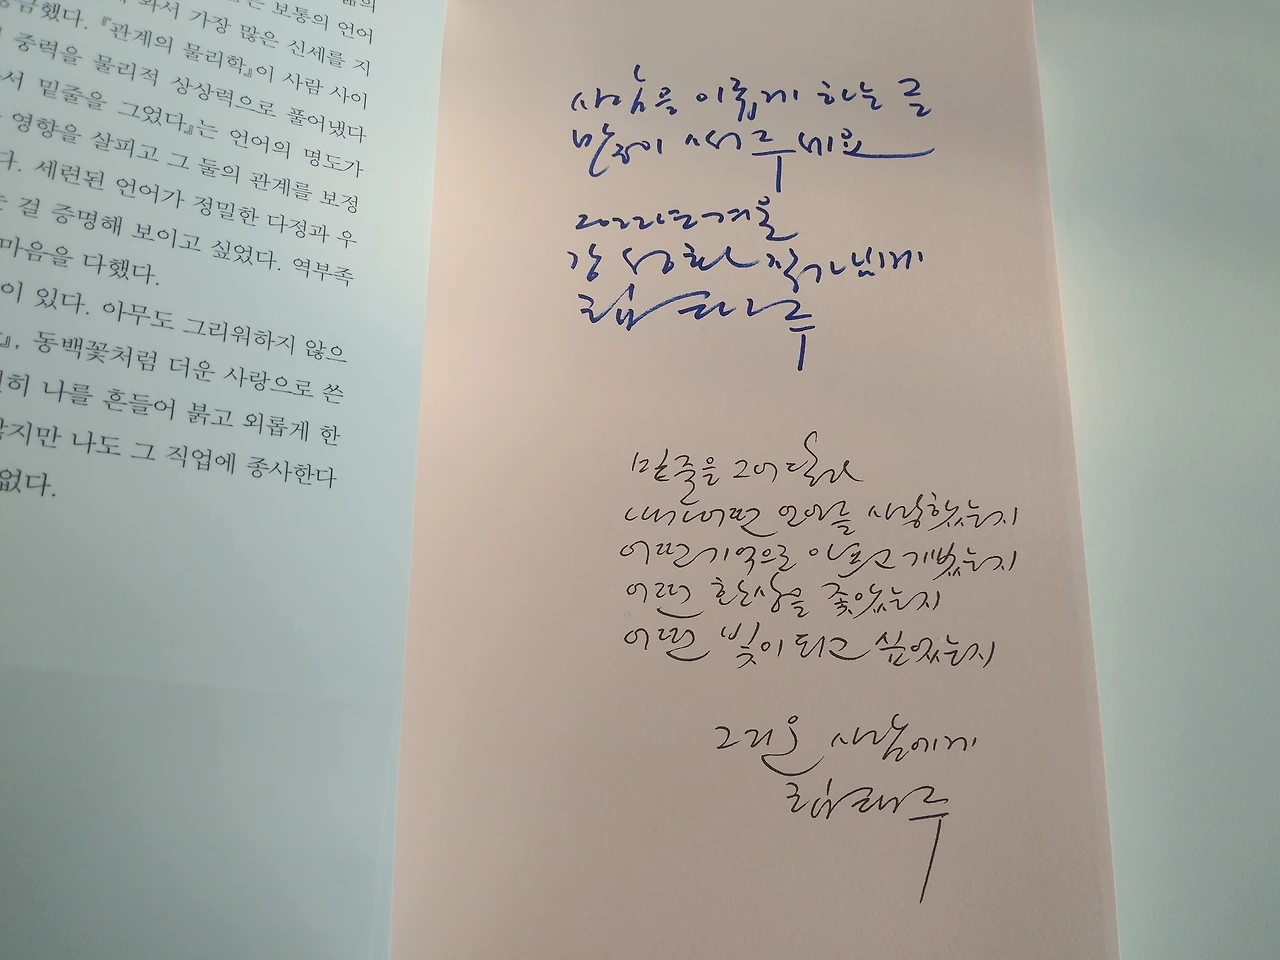 와서 가장 많은 신세를 지
는 보통의 언어
궁금했다. 『관계의 물리학』이 사람 사이
중력을 물리적 상상력으로 풀어냈다
서 밑줄을 그었다』는 언어의 명도가
영향을 살피고 그 둘의 관계를 보정
다. 세련된 언어가 정밀한 다정과 우
는 걸 증명해 보이고 싶었다. 역부족
마음을 다했다.
이 있다. 아무도 그리워하지 않으
』, 동백꽃처럼 더운 사랑으로 쓴
히 나를 흔들어 붉고 외롭게 한
않지만 나도 그 직업에 종사한다
없다.
사람을 이롭게 하는 글
많이 써주세요
2022년 겨울
강 작가님께
림태주
밑줄을 그어 달라
내가 어떤 언어를 사랑했는지
어떤 기억으로 아프고 기뻤는지
어떤 환상을 좇았는지
어떤 빛이 되고 싶었는지
그리운 사람에게
림태주